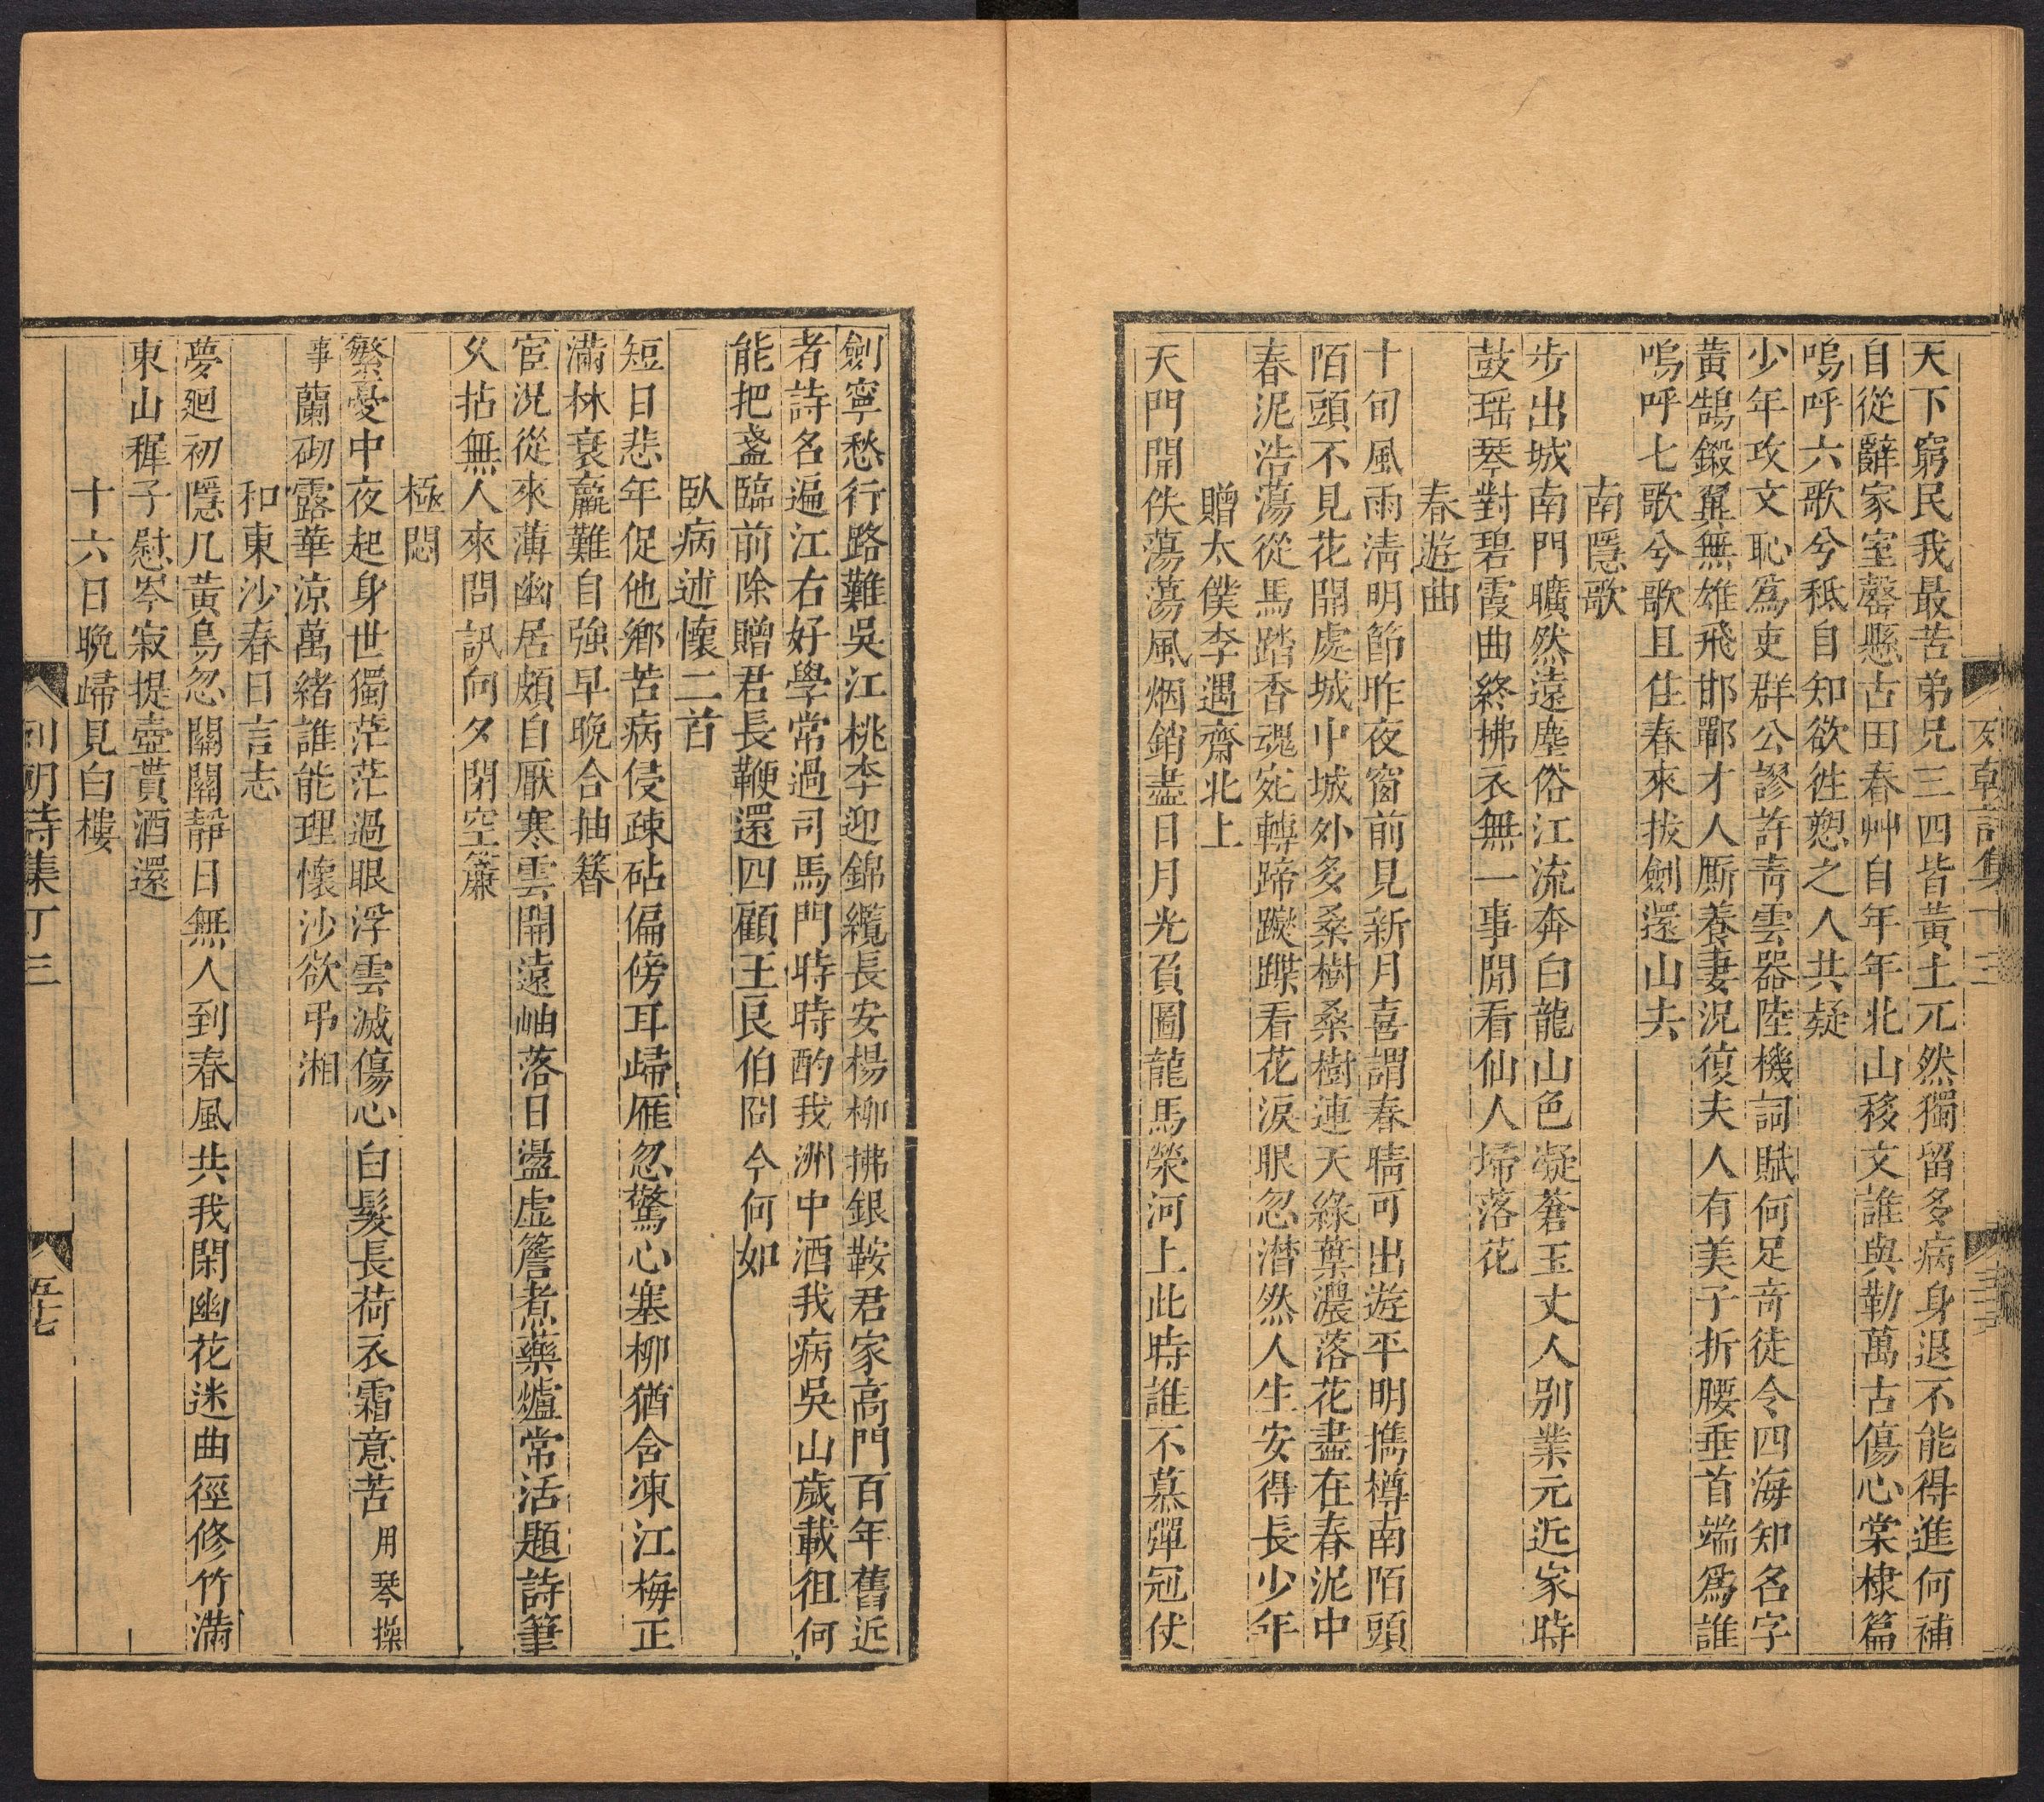 天下窮民我最苦弟兄三四皆黃土兀然獨留多病身退不能得進何補
自從辭家室罄懸古田春艸自年年北山移文誰與勒萬古傷心棠棣篇
嗚呼六歌兮秪自知欲徃愬之人共疑
少年攻文恥爲吏群公謬許青雲器陸機詞賦何足竒徒令四海知名字
黃鵠鍛翼無雄飛邯鄲才人厮養妻況復夫人有美子折腰垂首端爲誰
嗚呼七歌兮歌且住春來拔劍還山去
南隱歌
步出城南門曠然遠塵俗江流奔白龍山色凝蒼玉丈人别業元近家時
鼓瑶琴對碧霞曲終拂衣無一事閒看仙人埽落花
春遊曲
十旬風雨清明節昨夜窗前見新月喜謂春晴可出遊平明携樽南陌頭
陌頭不見花開處城中城外多桑樹桑樹連天綠葉濃落花盡在春泥中
春泥浩蕩從馬踏香魂宛轉蹄蹴蹀看花淚眼忽潸然人生安得長少年
贈太僕李遇齋北上
天門開佚蕩蕩風烟銷盡日月光負圖龍馬滎河上此時誰不慕彈冠仗
劍寧愁行路難吳江桃李迎錦纜長安楊柳拂銀鞍君家高門百年舊近
者詩名遍江右好學常過司馬門時時酌我洲中酒我病吳山歲載徂何
能把盞臨前除贈君長鞭還四顧王良伯冏今何如
臥病述懷二首
短日悲年促他鄉苦病侵疎砧偏傍耳歸雁忽驚心塞柳猶含凍江梅正
滿林衰羸難自強早晚合抽簪
宦況從來薄幽居頗自厭寒雲開遠岫落日盪虛簷煮藥爐常活題詩筆
久拈無人來問訊向夕閉空簾
極悶
繁憂中夜起身世獨茫茫過眼浮雲滅傷心白髮長荷衣霜意苦用琴操
事蘭砌露華涼萬緒誰能理懷沙欲弔湘
和東沙春日言志
夢廻初隱几黃鳥忽關關靜日無人到春風共我閑幽花迷曲徑修竹滿
東山稺子慰岑寂提壺貰酒還
十六日晩歸見白樓
列朝詩集丁三
五七